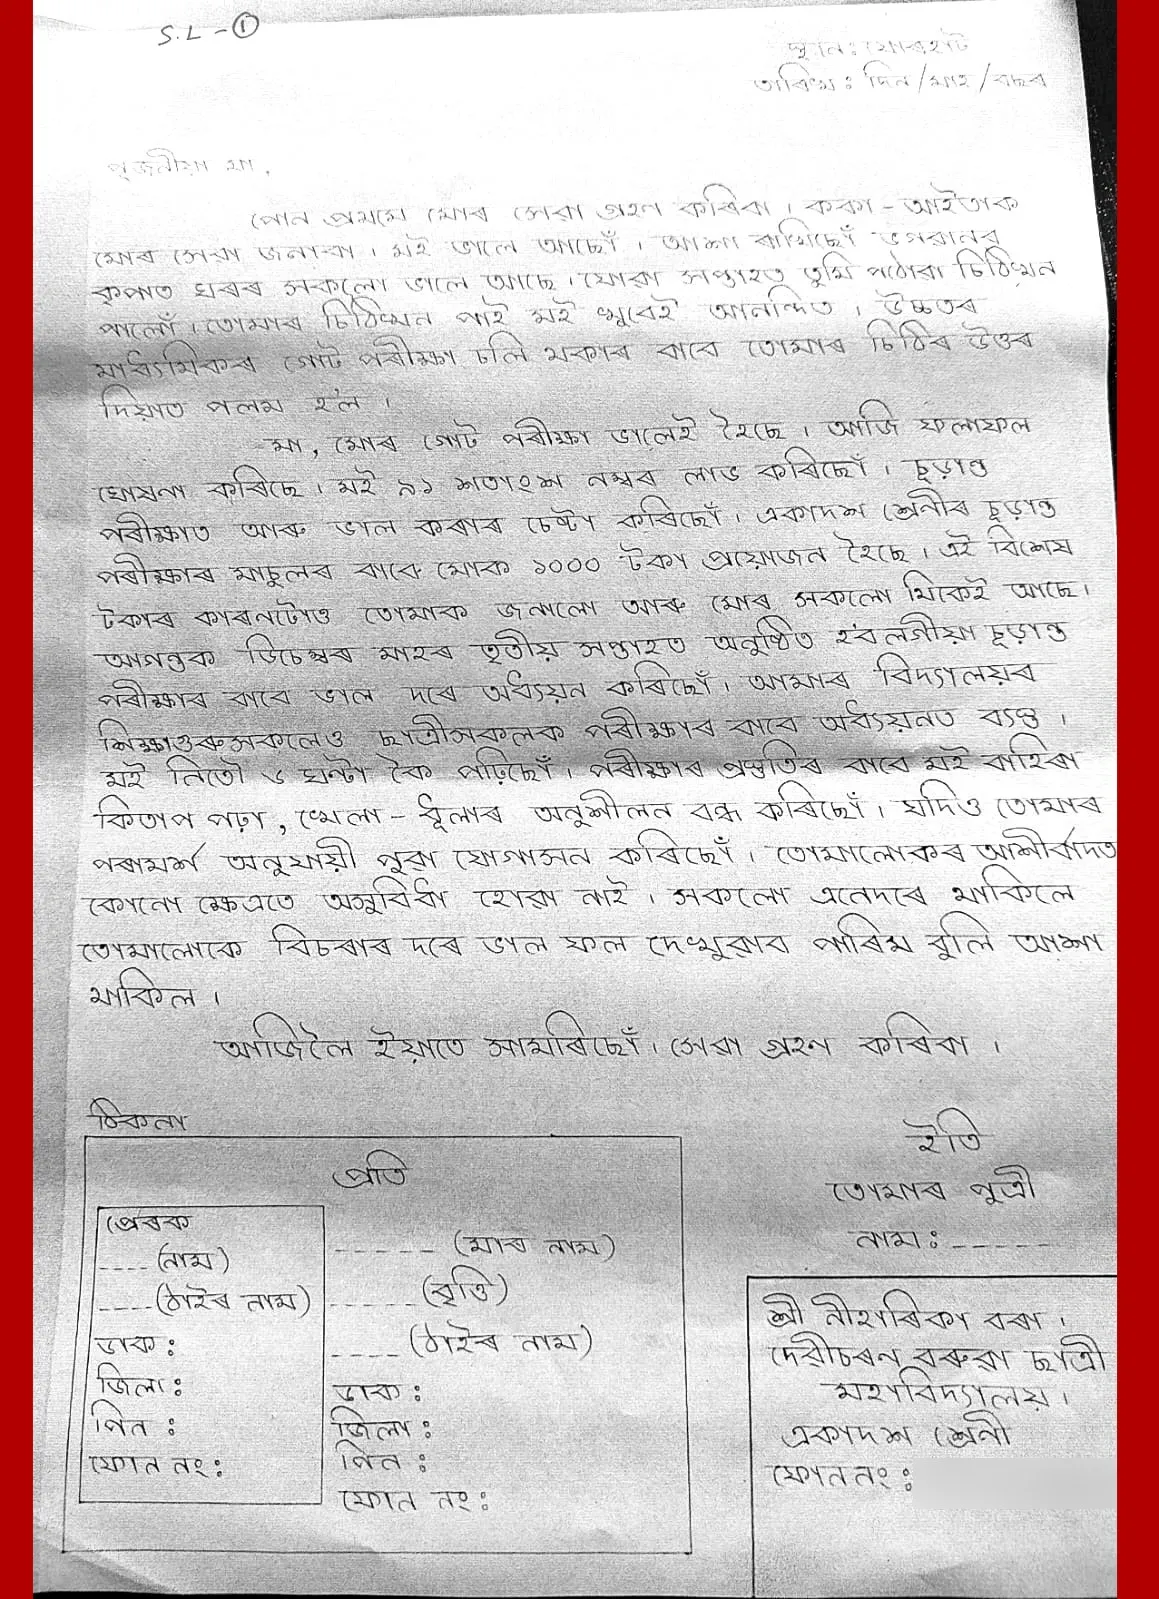 S.L - ①
স্থান: যোৰহাট
তাৰিখ: দিন/মাহ/বছৰ
পূজনীয়া মা,
পোন প্ৰথমে মোৰ সেৱা গ্ৰহণ কৰিবা। ককা - আইতাক
মোৰ সেৱা জনাবা। মই ভালে আছোঁ। আশা ৰাখিছোঁ ভগৱানৰ
কৃপাত ঘৰৰ সকলো ভালে আছে। যোৱা সপ্তাহত তুমি পঠোৱা চিঠিখন
পালোঁ। তোমাৰ চিঠিখন পাই মই খুবেই আনন্দিত। উচ্চতৰ
মাধ্যমিকৰ গোট পৰীক্ষা চলি থকাৰ বাবে তোমাৰ চিঠিৰ উত্তৰ
দিয়াত পলম হ'ল।
মা, মোৰ গোট পৰীক্ষা ভালেই হৈছে। আজি ফলাফল
ঘোষনা কৰিছে। মই ৯১ শতাংশ নম্বৰ লাভ কৰিছোঁ। চূড়ান্ত
পৰীক্ষাত আৰু ভাল কৰাৰ চেষ্টা কৰিছোঁ। একাদশ শ্ৰেনীৰ চূড়ান্ত
পৰীক্ষাৰ মাচুলৰ বাবে মোক ১০০০ টকা প্ৰয়োজন হৈছে। এই বিশেষ
টকাৰ কাৰনটোও তোমাক জনালো আৰু মোৰ সকলো ঠিকেই আছে।
আগন্তুক ডিচেম্বৰ মাহৰ তৃতীয় সপ্তাহত অনুষ্ঠিত হ'বলগীয়া চূড়ান্ত
পৰীক্ষাৰ বাবে ভাল দৰে অধ্যয়ন কৰিছোঁ। আমাৰ বিদ্যালয়ৰ
শিক্ষাগুৰুসকলেও ছাত্ৰীসকলক পৰীক্ষাৰ বাবে অধ্যয়নত ব্যস্ত।
মই নিতৌ ৬ ঘন্টা কৈ পঢ়িছোঁ। পৰীক্ষাৰ প্ৰস্তুতিৰ বাবে মই বাহিৰা
কিতাপ পঢ়া, খেলা - ধূলাৰ অনুশীলন বন্ধ কৰিছোঁ। যদিও তোমাৰ
পৰামৰ্শ অনুযায়ী পুৱা যোগাসন কৰিছোঁ। তোমালোকৰ আশীৰ্বাদত
কোনো ক্ষেত্ৰতে অসুবিধা হোৱা নাই। সকলো এনেদৰে থাকিলে
তোমালোকে বিচৰাৰ দৰে ভাল ফল দেখুৱাব পাৰিম বুলি আশা
থাকিল।
আজিলৈ ইয়াতে সামৰিছোঁ। সেৱা গ্ৰহণ কৰিবা।
ঠিকনা
প্ৰতি
প্ৰেৰক
---- (নাম)
---- (ঠাইৰ নাম)
ডাক:
জিলা:
পিন:
ফোন নং:
----- (মাৰ নাম)
----- (বৃত্তি)
---- (ঠাইৰ নাম)
ডাক:
জিলা:
পিন:
ফোন নং:
ইতি
তোমাৰ পুত্ৰী
নাম: -----
শ্ৰী নীহাৰিকা বৰা।
দেৱীচৰণ বৰুৱা ছাত্ৰী
মহাবিদ্যালয়।
একাদশ শ্ৰেনী
ফোন নং: